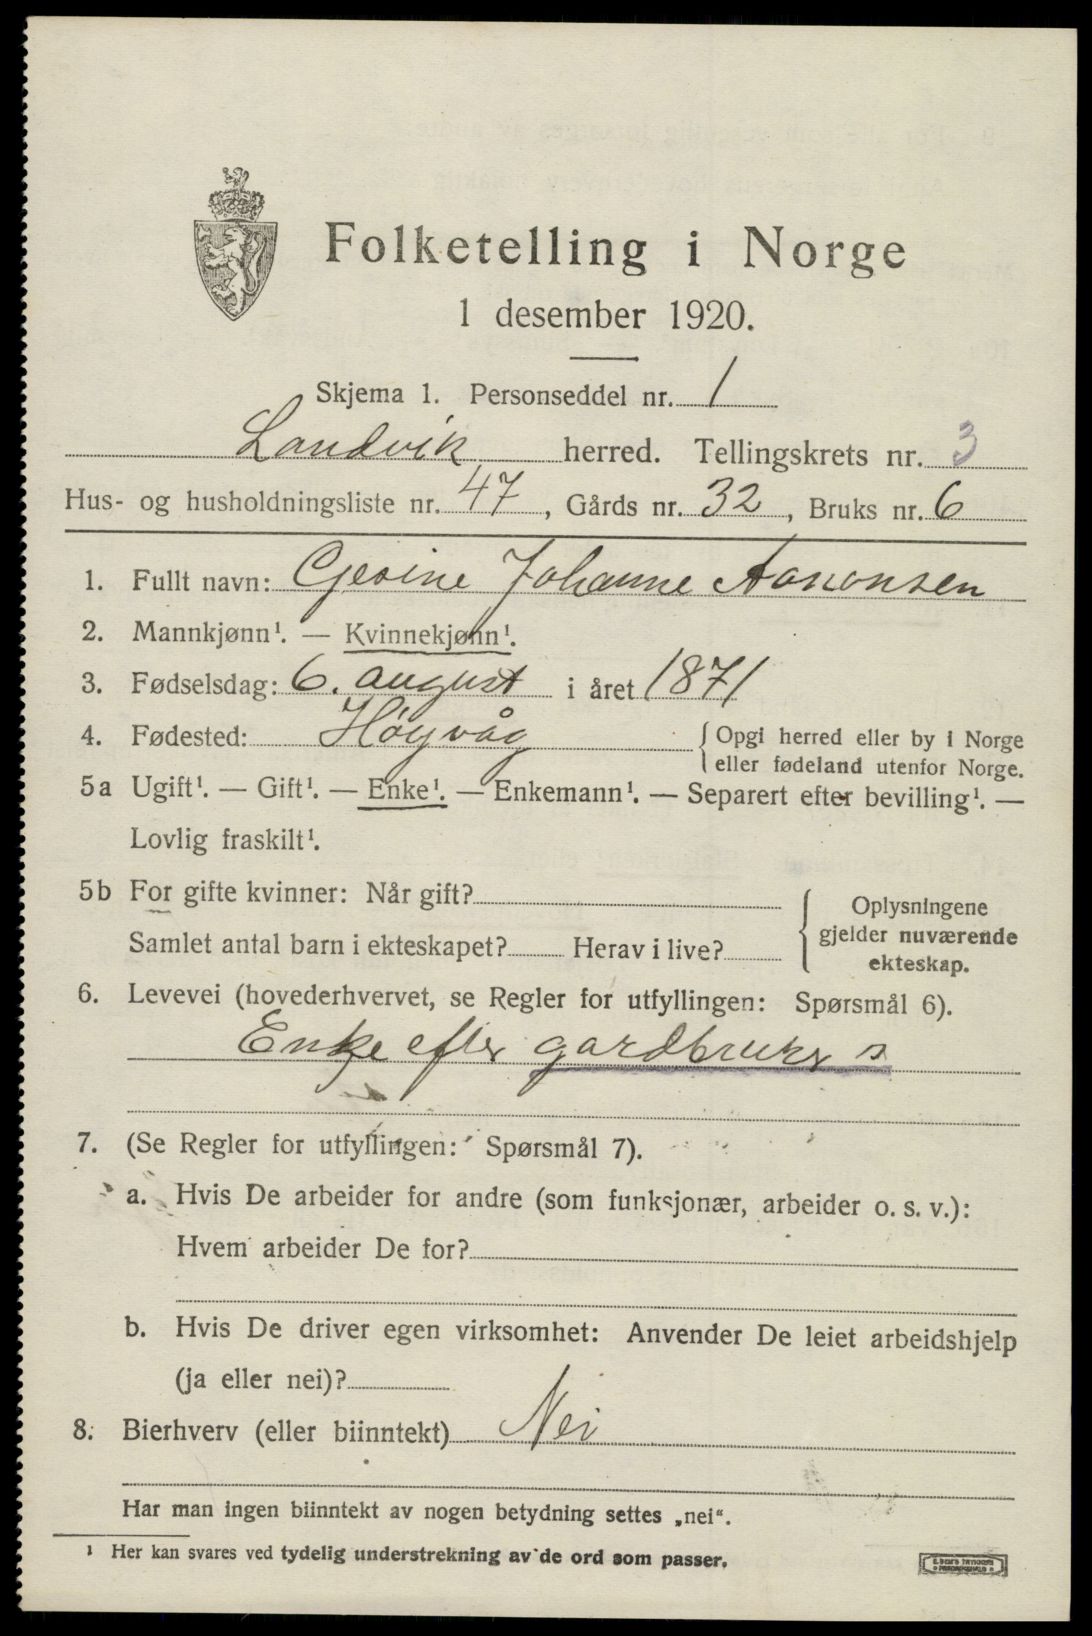 Folketelling i Norge
1 desember 1920.
Skjema 1. Personseddel nr. 1
Landvik herred. Tellingskrets nr. 3
Hus- og husholdningsliste nr. 47, Gårds nr. 32, Bruks nr. 6
1. Fullt navn: Gesine Johanne Aanonsen
2. Mannkjønn¹. — Kvinnekjønn¹.
3. Fødselsdag: 6. august i året 1871
4. Fødested: Høgvåg
Opgi herred eller by i Norge
eller fødeland utenfor Norge.
5a Ugift¹. — Gift¹. — Enke¹. — Enkemann¹. — Separert efter bevilling¹. —
Lovlig fraskilt¹.
5b For gifte kvinner: Når gift?
Samlet antal barn i ekteskapet? Herav i live?
Oplysningene
gjelder nuværende
ekteskap.
6. Levevei (hovederhvervet, se Regler for utfyllingen: Spørsmål 6).
Enke efter gardbruker s
7. (Se Regler for utfyllingen: Spørsmål 7).
a. Hvis De arbeider for andre (som funksjonær, arbeider o. s. v.):
Hvem arbeider De for?
b. Hvis De driver egen virksomhet: Anvender De leiet arbeidshjelp
(ja eller nei)?
8. Bierhverv (eller biinntekt) Nei
Har man ingen biinntekt av nogen betydning settes „nei“.
¹ Her kan svares ved tydelig understrekning av de ord som passer.